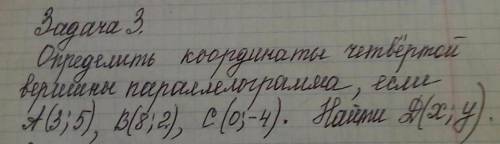 Задача 3.
Определить координаты четвёртой
вершины параллелограмма, если
A(3;5), B(8;2), C(0;-4). Найти D(x;y).